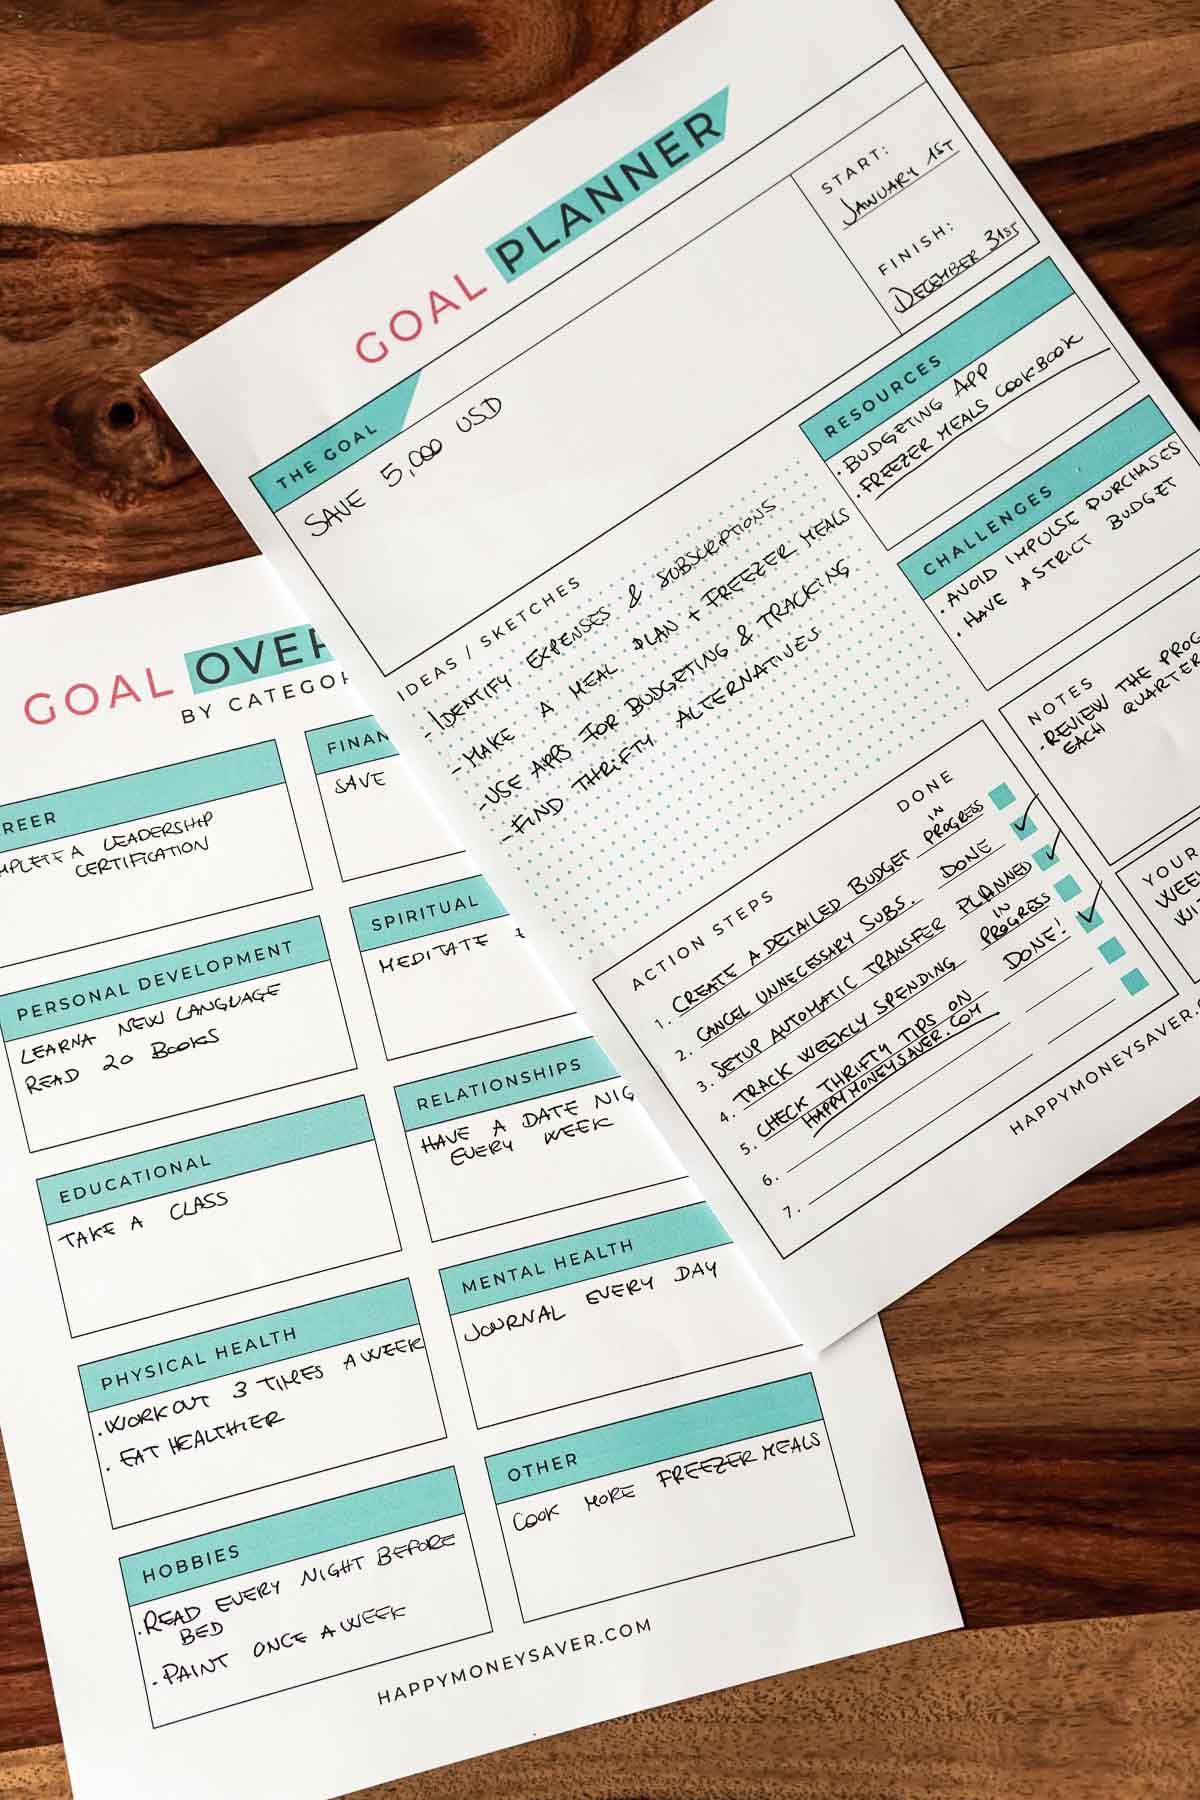 GOAL PLANNER
START:
JANUARY 1ST
FINISH:
DECEMBER 31ST
THE GOAL
SAVE 5,000 USD
RESOURCES
• BUDGETING APP
• FREEZER MEALS COOKBOOK
CHALLENGES
• AVOID IMPULSE PURCHASES
• HAVE A STRICT BUDGET
IDEAS / SKETCHES
- IDENTIFY EXPENSES & SUBSCRIPTIONS
- MAKE A MEAL PLAN + FREEZER MEALS
- USE APPS FOR BUDGETING & TRACKING
- FIND THRIFTY ALTERNATIVES
NOTES
• REVIEW THE PROG
EACH QUARTER
YOUR
WEE
WIT
ACTION STEPS DONE
1. CREATE A DETAILED BUDGET IN PROGRESS
2. CANCEL UNNECESSARY SUBS. DONE ✓
3. SETUP AUTOMATIC TRANSFER PLANNED ✓
4. TRACK WEEKLY SPENDING IN PROGRESS
5. CHECK THRIFTY TIPS ON DONE! ✓
HAPPYMONEYSAVER.COM
6.
7.
HAPPYMONEYSAVER.
GOAL OVER
BY CATEGOR
REER
MPLETE A LEADERSHIP
CERTIFICATION
FINAN
SAVE
PERSONAL DEVELOPMENT
LEARN A NEW LANGUAGE
READ 20 BOOKS
SPIRITUAL
MEDITATE
EDUCATIONAL
TAKE A CLASS
RELATIONSHIPS
HAVE A DATE NIG
EVERY WEEK
PHYSICAL HEALTH
• WORK OUT 3 TIMES A WEEK
• EAT HEALTHIER
MENTAL HEALTH
JOURNAL EVERY DAY
HOBBIES
• READ EVERY NIGHT BEFORE
BED
• PAINT ONCE A WEEK
OTHER
COOK MORE FREEZER MEALS
HAPPYMONEYSAVER.COM